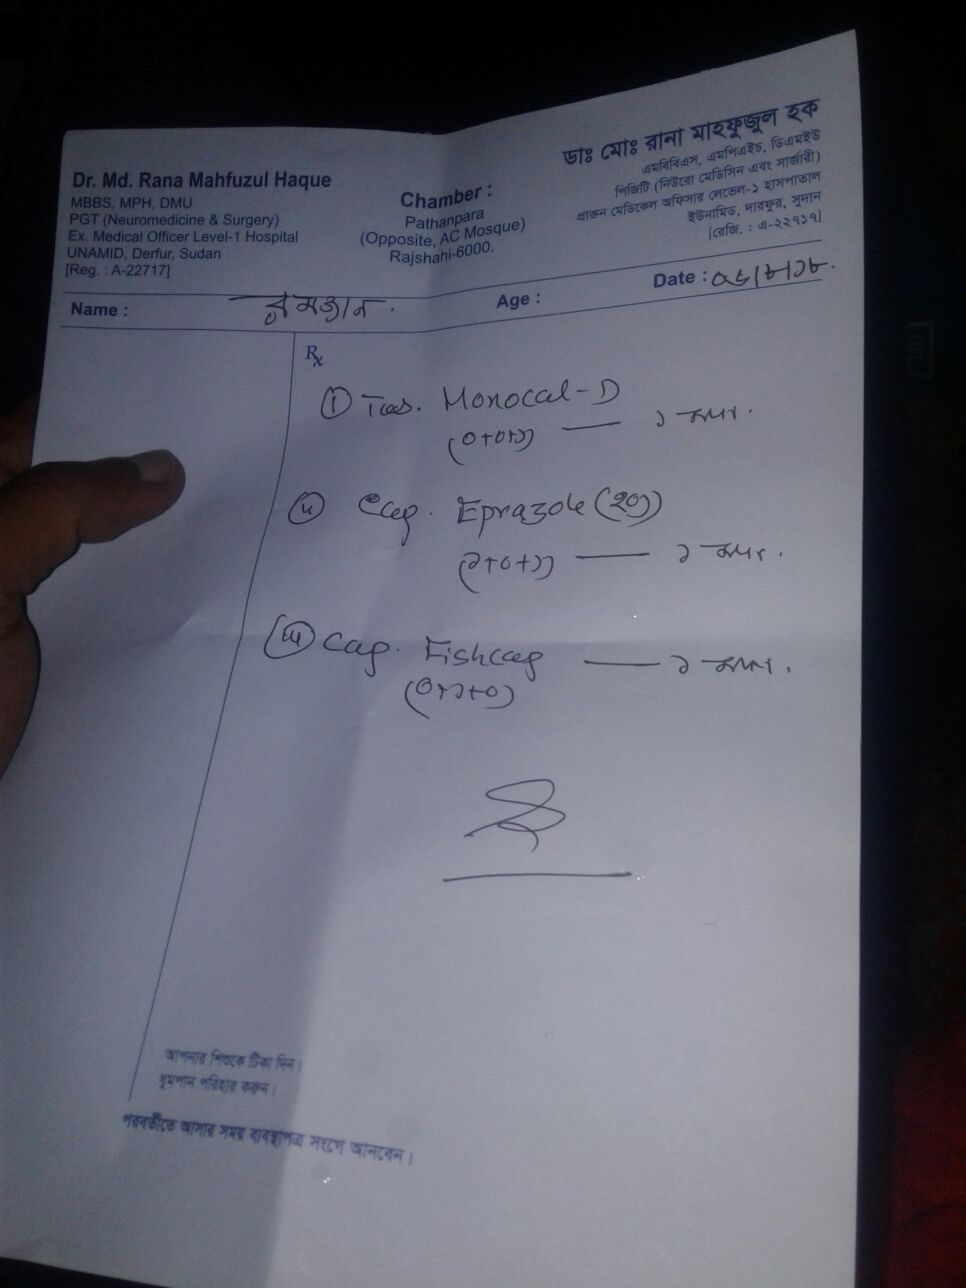 Dr. Md. Rana Mahfuzul Haque
MBBS, MPH, DMU
PGT (Neuromedicine & Surgery)
Ex. Medical Officer Level-1 Hospital
UNAMID, Derfur, Sudan
[Reg. : A-22717]
Chamber :
Pathanpara
(Opposite, AC Mosque)
Rajshahi-6000.
ডাঃ মোঃ রানা মাহফুজুল হক
এমবিবিএস, এমপিএইচ, ডিএমইউ
পিজিটি (নিউরো মেডিসিন এবং সার্জারী)
প্রাক্তন মেডিকেল অফিসার লেভেল-১ হাসপাতাল
ইউনামিড, দারফুর, সুদান
[রেজি. : এ-২২৭১৭]
Name :
Age :
Date :
Rx
i Tab. Monocal-D
(০+০+১) — ১ মাস.
ii Cap. Eprazole (২০)
(১+০+১) — ১ মাস.
iii Cap. Fishcap — ১ মাস.
(০+১+০)
আপনার শিশুকে টিকা দিন।
ধুমপান পরিহার করুন।
পরবর্তীতে আসার সময় ব্যবস্থাপত্র সংগে আনবেন।